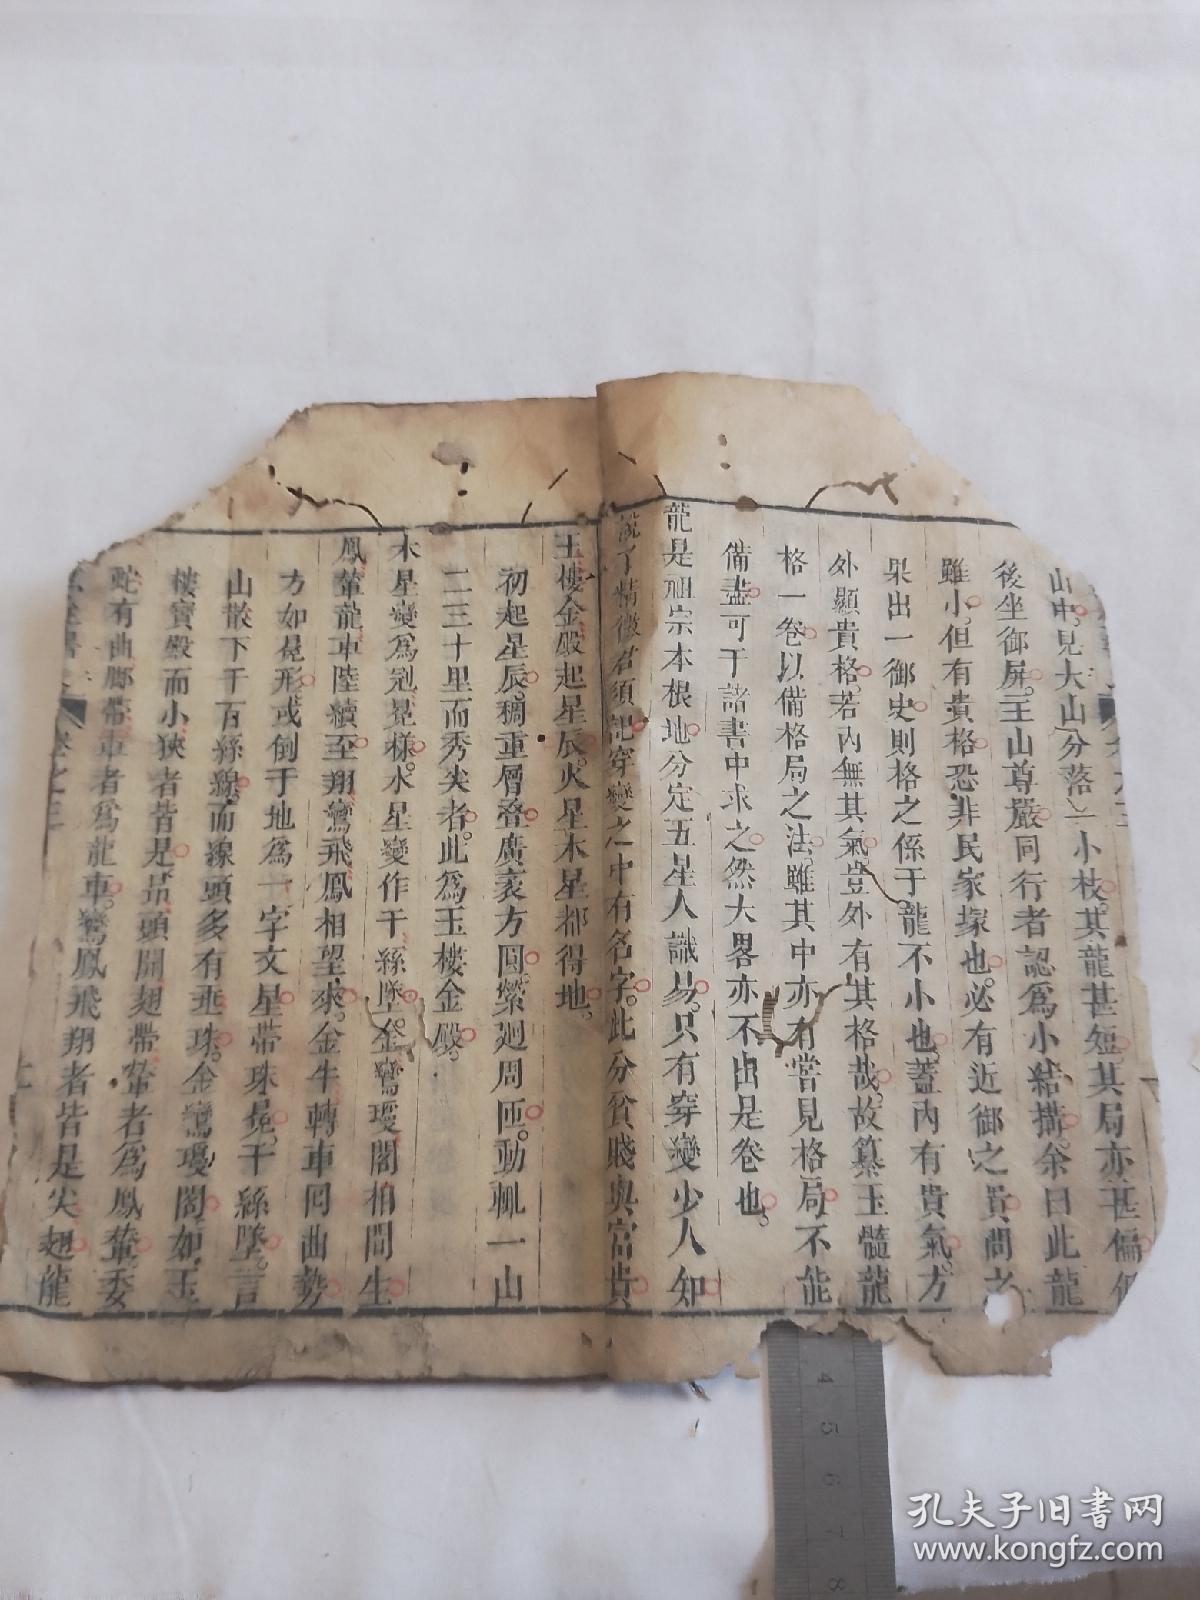 山中見大山分落一小枝其龍甚短其局亦甚偏
後坐御屏王山尊嚴同行者認為小結搆余曰此龍
雖小但有貴格恐非民家塚也必有近御之貴問之
果出一御史則格之係于龍不小也蓋內有貴氣方
外顯貴格若內無其氣豈外有其格哉故纂玉髓龍
格一卷以備格局之法雖其中亦有嘗見格局不能
備盡可于諸書中求之然大畧亦不出是卷也
龍是祖宗本根地分定五星人識易只有穿變少人知
說了精微君須記穿變之中有名字此分貧賤與富貴
玉樓金殿起星辰火星木星都得地
初起星辰稠重層疊廣袤方圓縈廻周匝動輒一山
二三十里而秀尖者此為玉樓金殿
木星變為冠冕樣水星變作千絲墜金鸞瓊閣相間生
鳳輦龍車陸續至翔鸞飛鳳相望來金牛轉車同曲勢
方如冕形或倒于地為一字文星帶珠冕千絲墜言
山散下千百絲線而線頭多有垂珠金鸞瓊閣如玉
樓寶殿而小狹者皆是昂頭開翅帶輦者為鳳輦委
蛇有曲腳帶車者為龍車鸞鳳飛翔者皆是尖翅龍
卷之三
孔夫子旧书网
www.kongfz.com
4 5 6 7 8